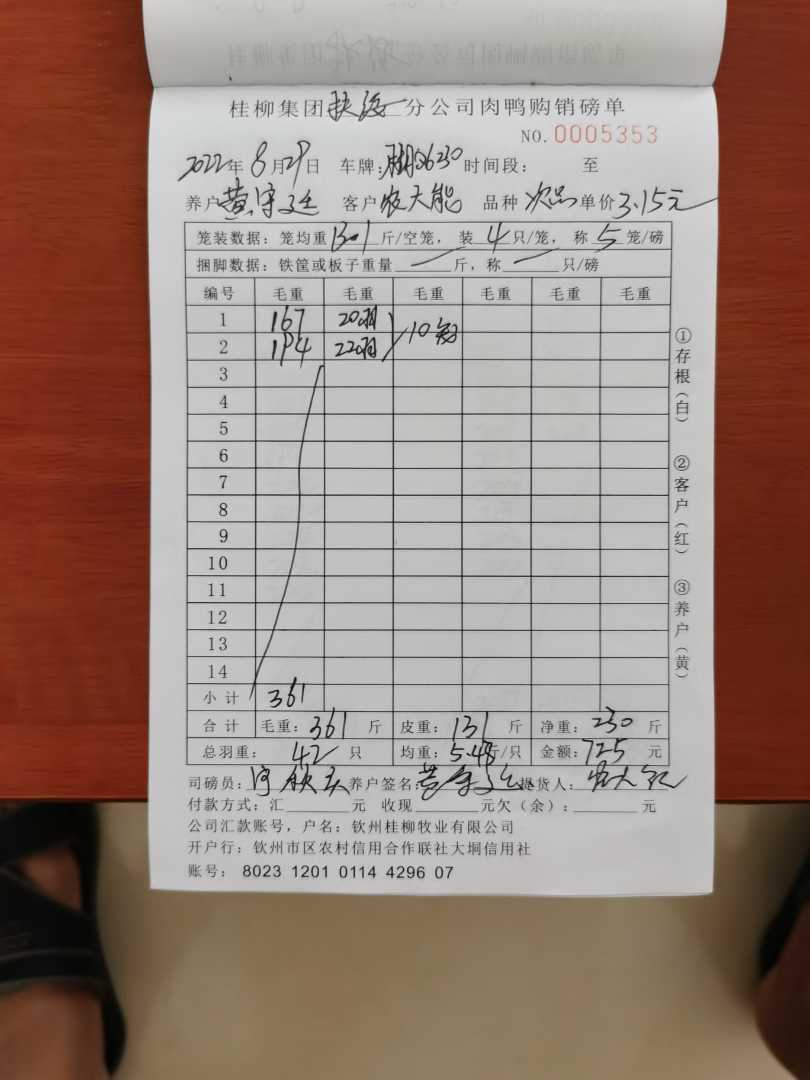 桂柳集团扶海分公司肉鸭购销磅单
NO.0005353
2022年8月29日 车牌:Q6230 时间段: 至
养户黄守廷 客户农大能 品种次品单价3.15元
笼装数据:笼均重13.1斤/空笼,装4只/笼,称5笼/磅
捆脚数据:铁筐或板子重量 斤,称 只/磅
编号 毛重 毛重 毛重 毛重 毛重 毛重
1 167 20羽
2 194 22羽 10
3
4
5
6
7
8
9
10
11
12
13
14
小计 361
合计 毛重:361斤 皮重:131斤 净重:230斤
总羽重:42只 均重:5.48斤/只 金额:725元
司磅员: 养户签名: 提货人:
付款方式:汇 元 收现 元欠(余): 元
公司汇款账号,户名:钦州桂柳牧业有限公司
开户行:钦州市区农村信用合作联社大垌信用社
账号:8023 1201 0114 4296 07
①存根(白)
②客户(红)
③养户(黄)